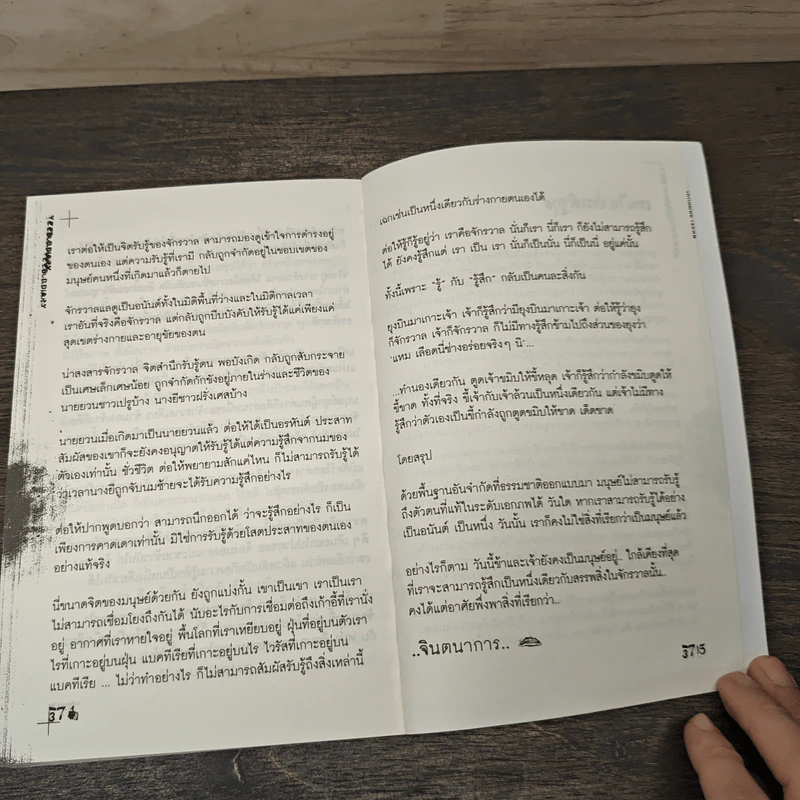 เราต่อให้เป็นจิตรับรู้ของจักรวาล สามารถมองดูเข้าใจการดำรงอยู่
ของตนเอง แต่ความรับรู้ที่เรามี กลับถูกจำกัดอยู่ในขอบเขตของ
มนุษย์คนหนึ่งที่เกิดมาแล้วก็ตายไป
จักรวาลแลดูเป็นอนันต์ทั้งในมิติพื้นที่ว่างและในมิติกาลเวลา
เราอันที่จริงคือจักรวาล แต่กลับถูกบีบบังคับให้รับรู้ได้แค่เพียงแค่
สุดเขตร่างกายและอายุขัยของตน
น่าสงสารจักรวาล จิตสำนึกรับรู้ตน พอบังเกิด กลับถูกสับกระจาย
เป็นเศษเล็กเศษน้อย ถูกจำกัดกักขังอยู่ภายในร่างและชีวิตของ
นายยวนชาวเปรูบ้าง นางยีชาวฝรั่งเศสบ้าง
นายยวนเมื่อเกิดมาเป็นนายยวนแล้ว ต่อให้ได้เป็นอรหันต์ ประสาท
สัมผัสของเขาก็จะยังคงอนุญาตให้รับรู้ได้แต่ความรู้สึกจากนมของ
ตัวเองเท่านั้น ชั่วชีวิต ต่อให้พยายามสักแค่ไหน ก็ไม่สามารถรับรู้ได้
ว่าเวลานางยีถูกจับนมซ้ายจะได้รับความรู้สึกอย่างไร
ต่อให้ปากพูดบอกว่า สามารถนึกออกได้ ว่าจะรู้สึกอย่างไร ก็เป็น
เพียงการคาดเดาเท่านั้น มิใช่การรับรู้ด้วยโสตประสาทของตนเอง
อย่างแท้จริง
นี่ขนาดจิตของมนุษย์ด้วยกัน ยังถูกแบ่งกั้น เขาเป็นเขา เราเป็นเรา
ไม่สามารถเชื่อมโยงถึงกันได้ นับอะไรกับการเชื่อมต่อถึงเก้าอี้ที่เรานั่ง
อยู่ อากาศที่เราหายใจอยู่ พื้นโลกที่เราเหยียบอยู่ ฝุ่นที่อยู่บนตัวเรา
ไรที่เกาะอยู่บนฝุ่น แบคทีเรียที่เกาะอยู่บนไร ไวรัสที่เกาะอยู่บน
แบคทีเรีย ... ไม่ว่าทำอย่างไร ก็ไม่สามารถสัมผัสรับรู้ถึงสิ่งเหล่านี้
374
เฉกเช่นเป็นหนึ่งเดียวกับร่างกายตนเองได้
ต่อให้รู้ก็รู้อยู่ว่า เราคือจักรวาล นั่นก็เรา นี่ก็เรา ก็ยังไม่สามารถรู้สึก
ได้ ยังคงรู้สึกแต่ เรา เป็น เรา นั่นก็เป็นนั่น นี่ก็เป็นนี่ อยู่แค่นั้น
ทั้งนี้เพราะ "รู้" กับ "รู้สึก" กลับเป็นคนละสิ่งกัน
ยุงบินมาเกาะเจ้า เจ้าก็รู้สึกว่ามียุงบินมาเกาะเจ้า ต่อให้รู้ว่ายุง
ก็จักรวาล เจ้าก็จักรวาล ก็ไม่มีทางรู้สึกข้ามไปถึงส่วนของยุงว่า
'แหม เลือดนี่ช่างอร่อยจริงๆ นิ'...
...ทำนองเดียวกัน ตูดเจ้าขมิบให้ขี้หลุด เจ้าก็รู้สึกว่ากำลังขมิบตูดให้
ขี้ขาด ทั้งที่จริง ขี้เจ้ากับเจ้าล้วนเป็นหนึ่งเดียวกัน แต่เจ้าไม่มีทาง
รู้สึกว่าตัวเองเป็นขี้กำลังถูกตูดขมิบให้ขาด เด็ดขาด
โดยสรุป
ด้วยพื้นฐานอันจำกัดที่ธรรมชาติออกแบบมา มนุษย์ไม่สามารถรับรู้
ถึงตัวตนที่แท้ในระดับเอกภาพได้ วันใด หากเราสามารถรับรู้ได้อย่าง
เป็นอนันต์ เป็นหนึ่ง วันนั้น เราก็คงไม่ใช่สิ่งที่เรียกว่าเป็นมนุษย์แล้ว
อย่างไรก็ตาม วันนี้ข้าและเจ้ายังคงเป็นมนุษย์อยู่.. ใกล้เคียงที่สุด
ที่เราจะสามารถรู้สึกเป็นหนึ่งเดียวกับสรรพสิ่งในจักรวาลนั้น..
คงได้แต่อาศัยพึ่งพาสิ่งที่เรียกว่า..
..จินตนาการ..
375